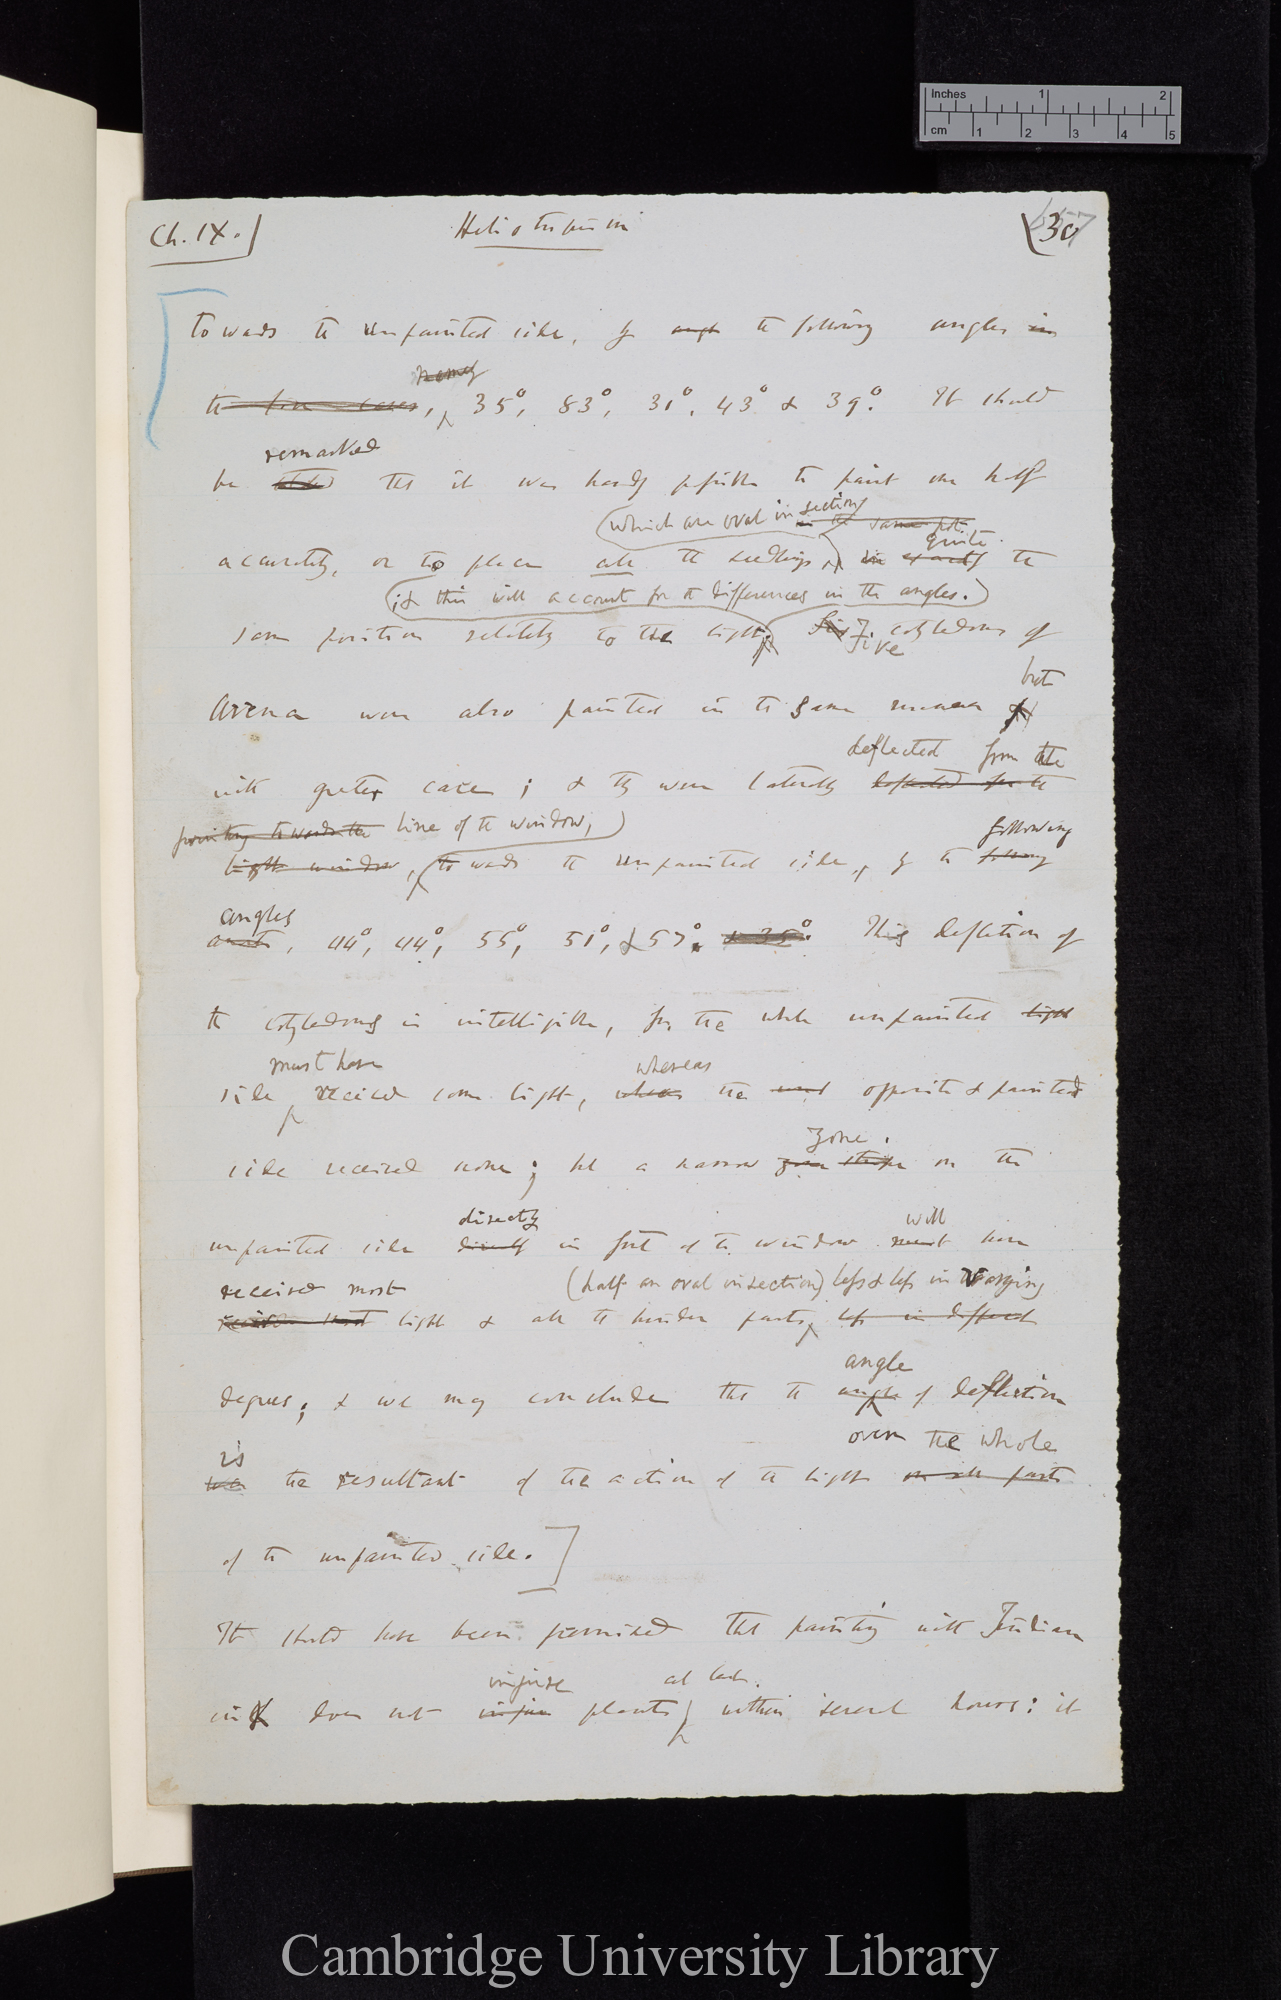 Inches 1 2
cm 1 2 3 4 5
Ch. IX.
Heliotropism
30
towards the unpainted side, by the following angles in
namely
the five cases, 35°, 83°, 31°, 43° & 39°. It should
remarked
be that it was hardly possible to paint one half
(which are oval in section) in the same pot
quite
accurately, or to place all the seedlings in exactly the
; & this will account for the differences in the angles.
same position relatively to the light; Five cotyledons of
but
Avena were also painted in the same manner &
deflected from the
with greater care; & they were laterally deflected from the
pointing towards the line of the window,
light window, towards the unpainted side, by the
following
following
angles
angles, 44°, 44°, 55°, 51°, & 57°. & 35°. This deflection of
the cotyledons is intelligible, for the whole unpainted light
must have whereas
side received some light, whereas the opposite & painted
zone.
side received none; but a narrow zone stripe on the
directly will
unpainted side directly in front of the window must have
received most (half an oval in section) less & less in varying
received most light & all the hinder parts less in different
angle
degrees; & we may conclude that the angle of deflection
over the whole
is
was the resultant of the action of the light on all parts
of the unpainted side.
It should have been premised that painting with Indian
injure at least
ink does not injure plants within several hours: it
Cambridge University Library